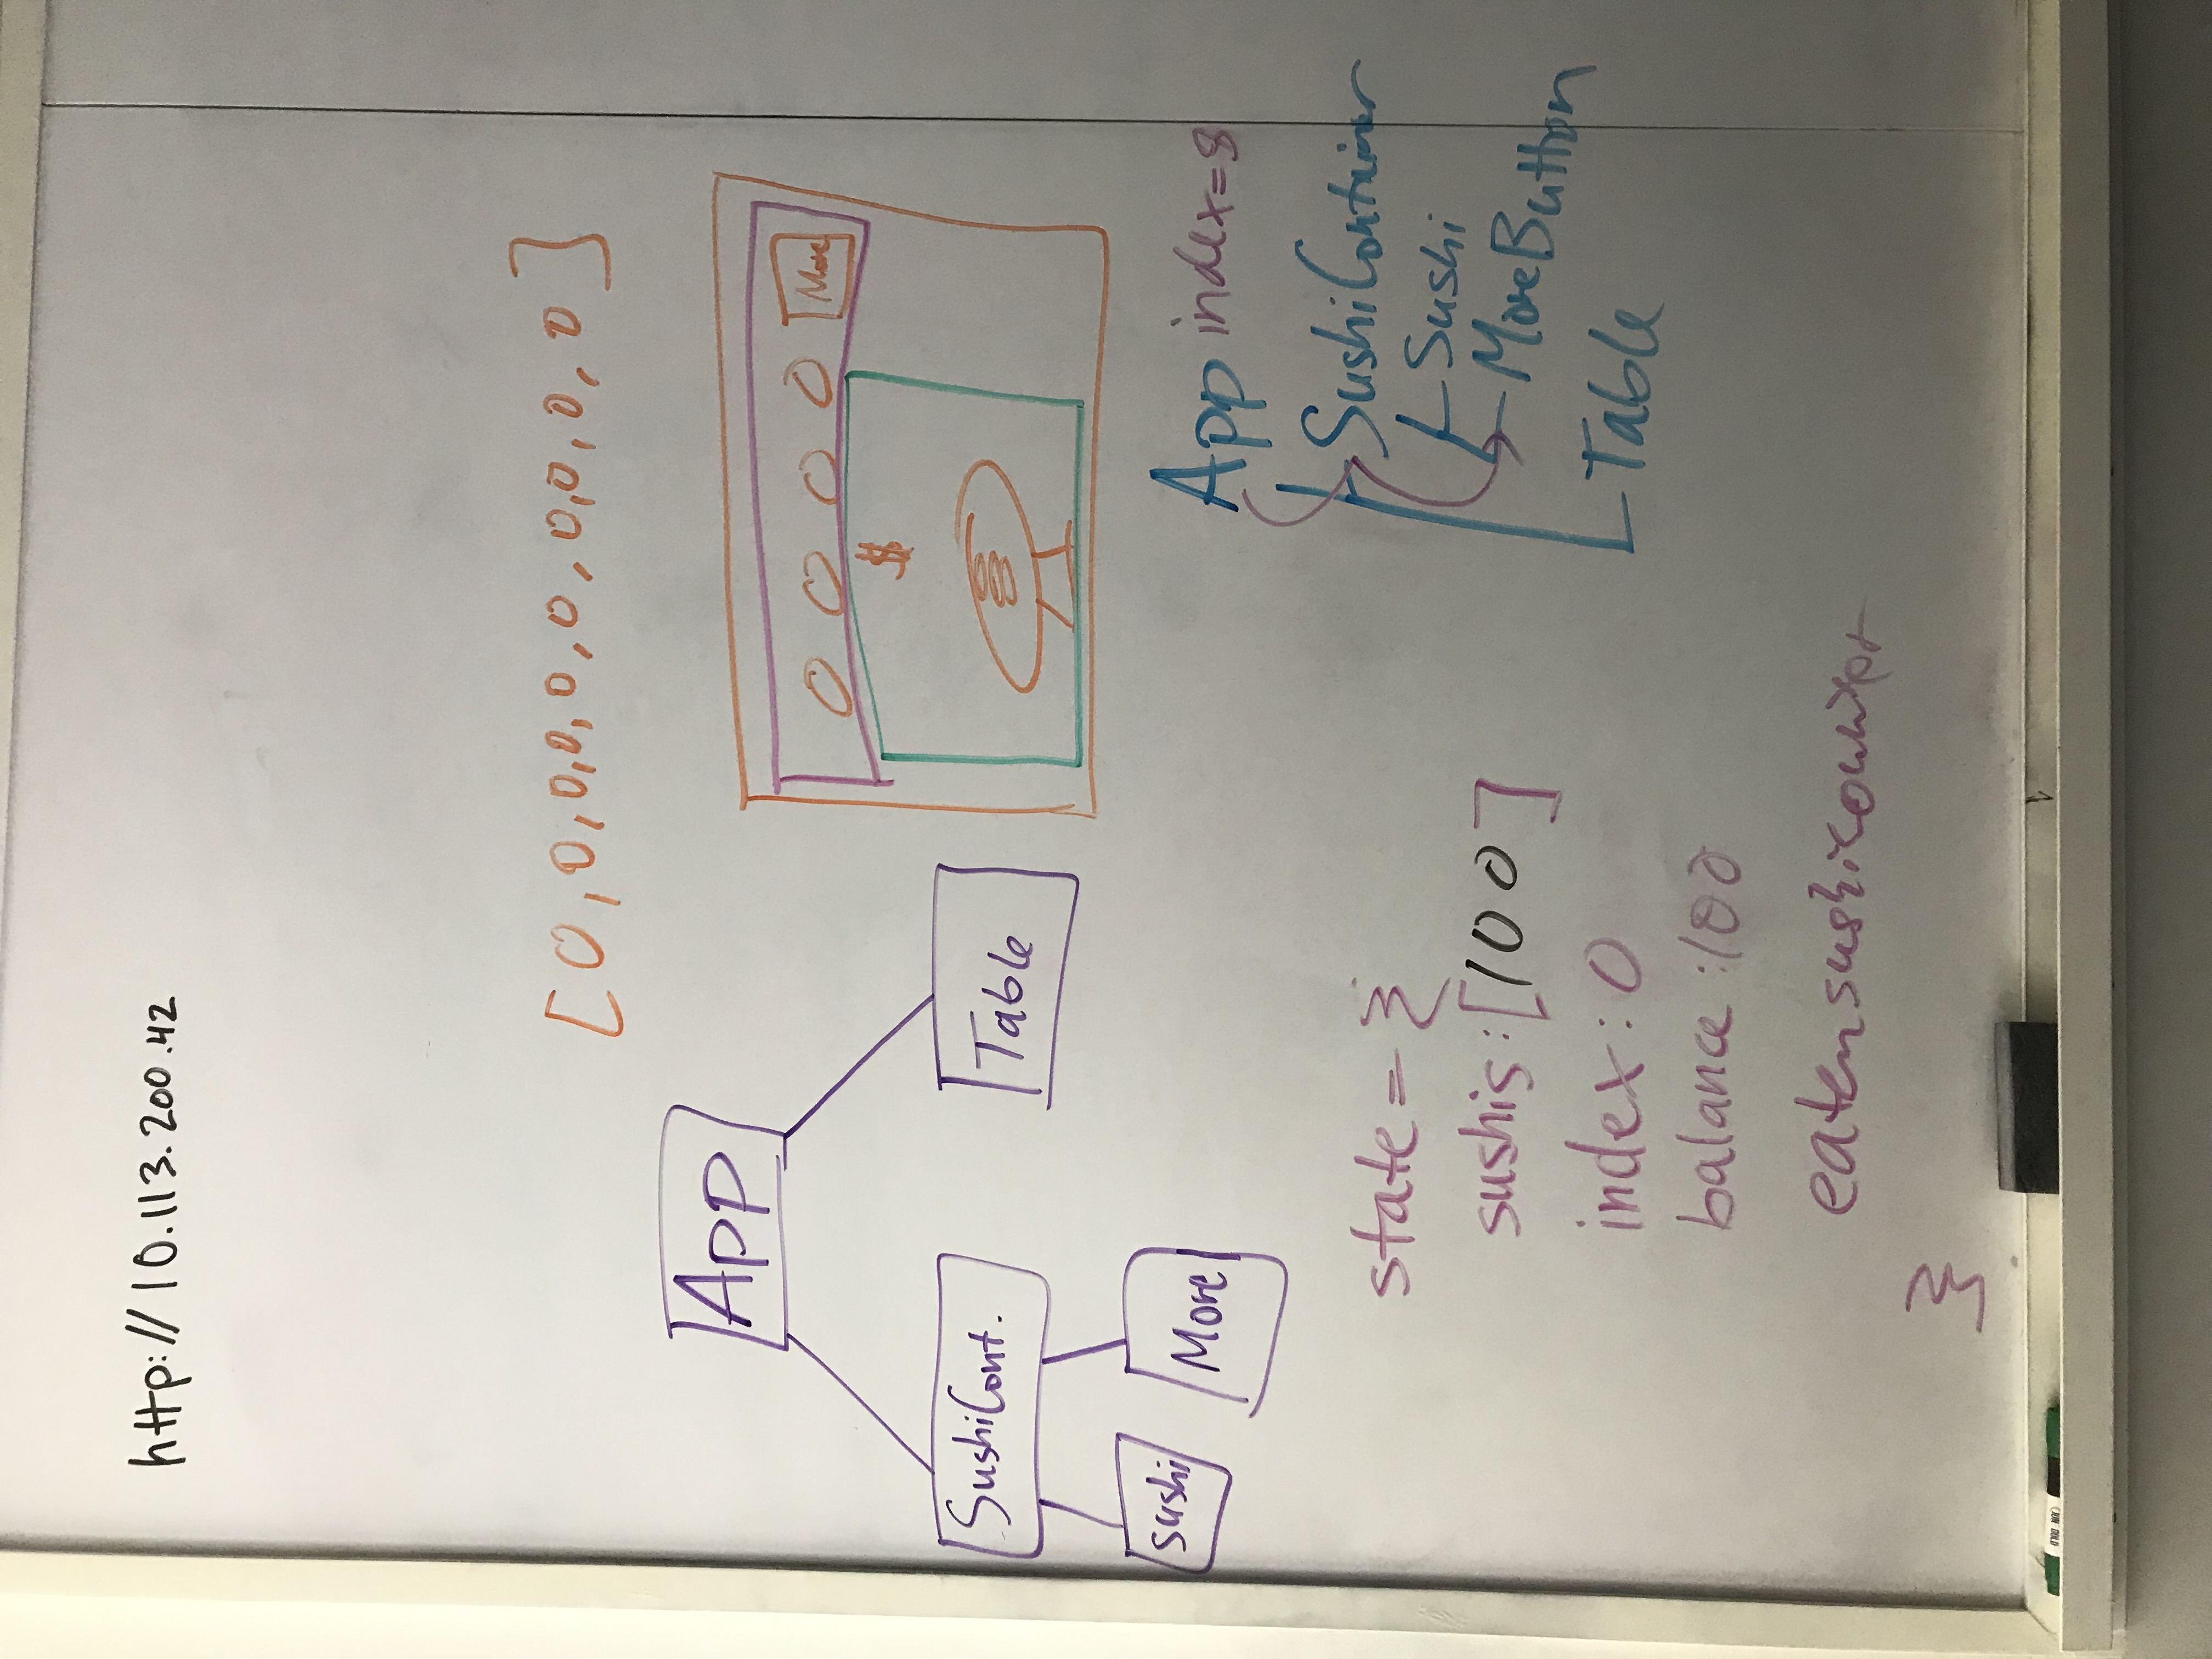 http://10.113.200.42
[0,0,0,0,0,0,0,0,0,0]
App
SushiCont.
Table
sushi
More
More
$
App index=8
SushiContainer
Sushi
MoreButton
Table
state = {
sushis:[100]
index: 0
balance:100
eatensushicounter
}